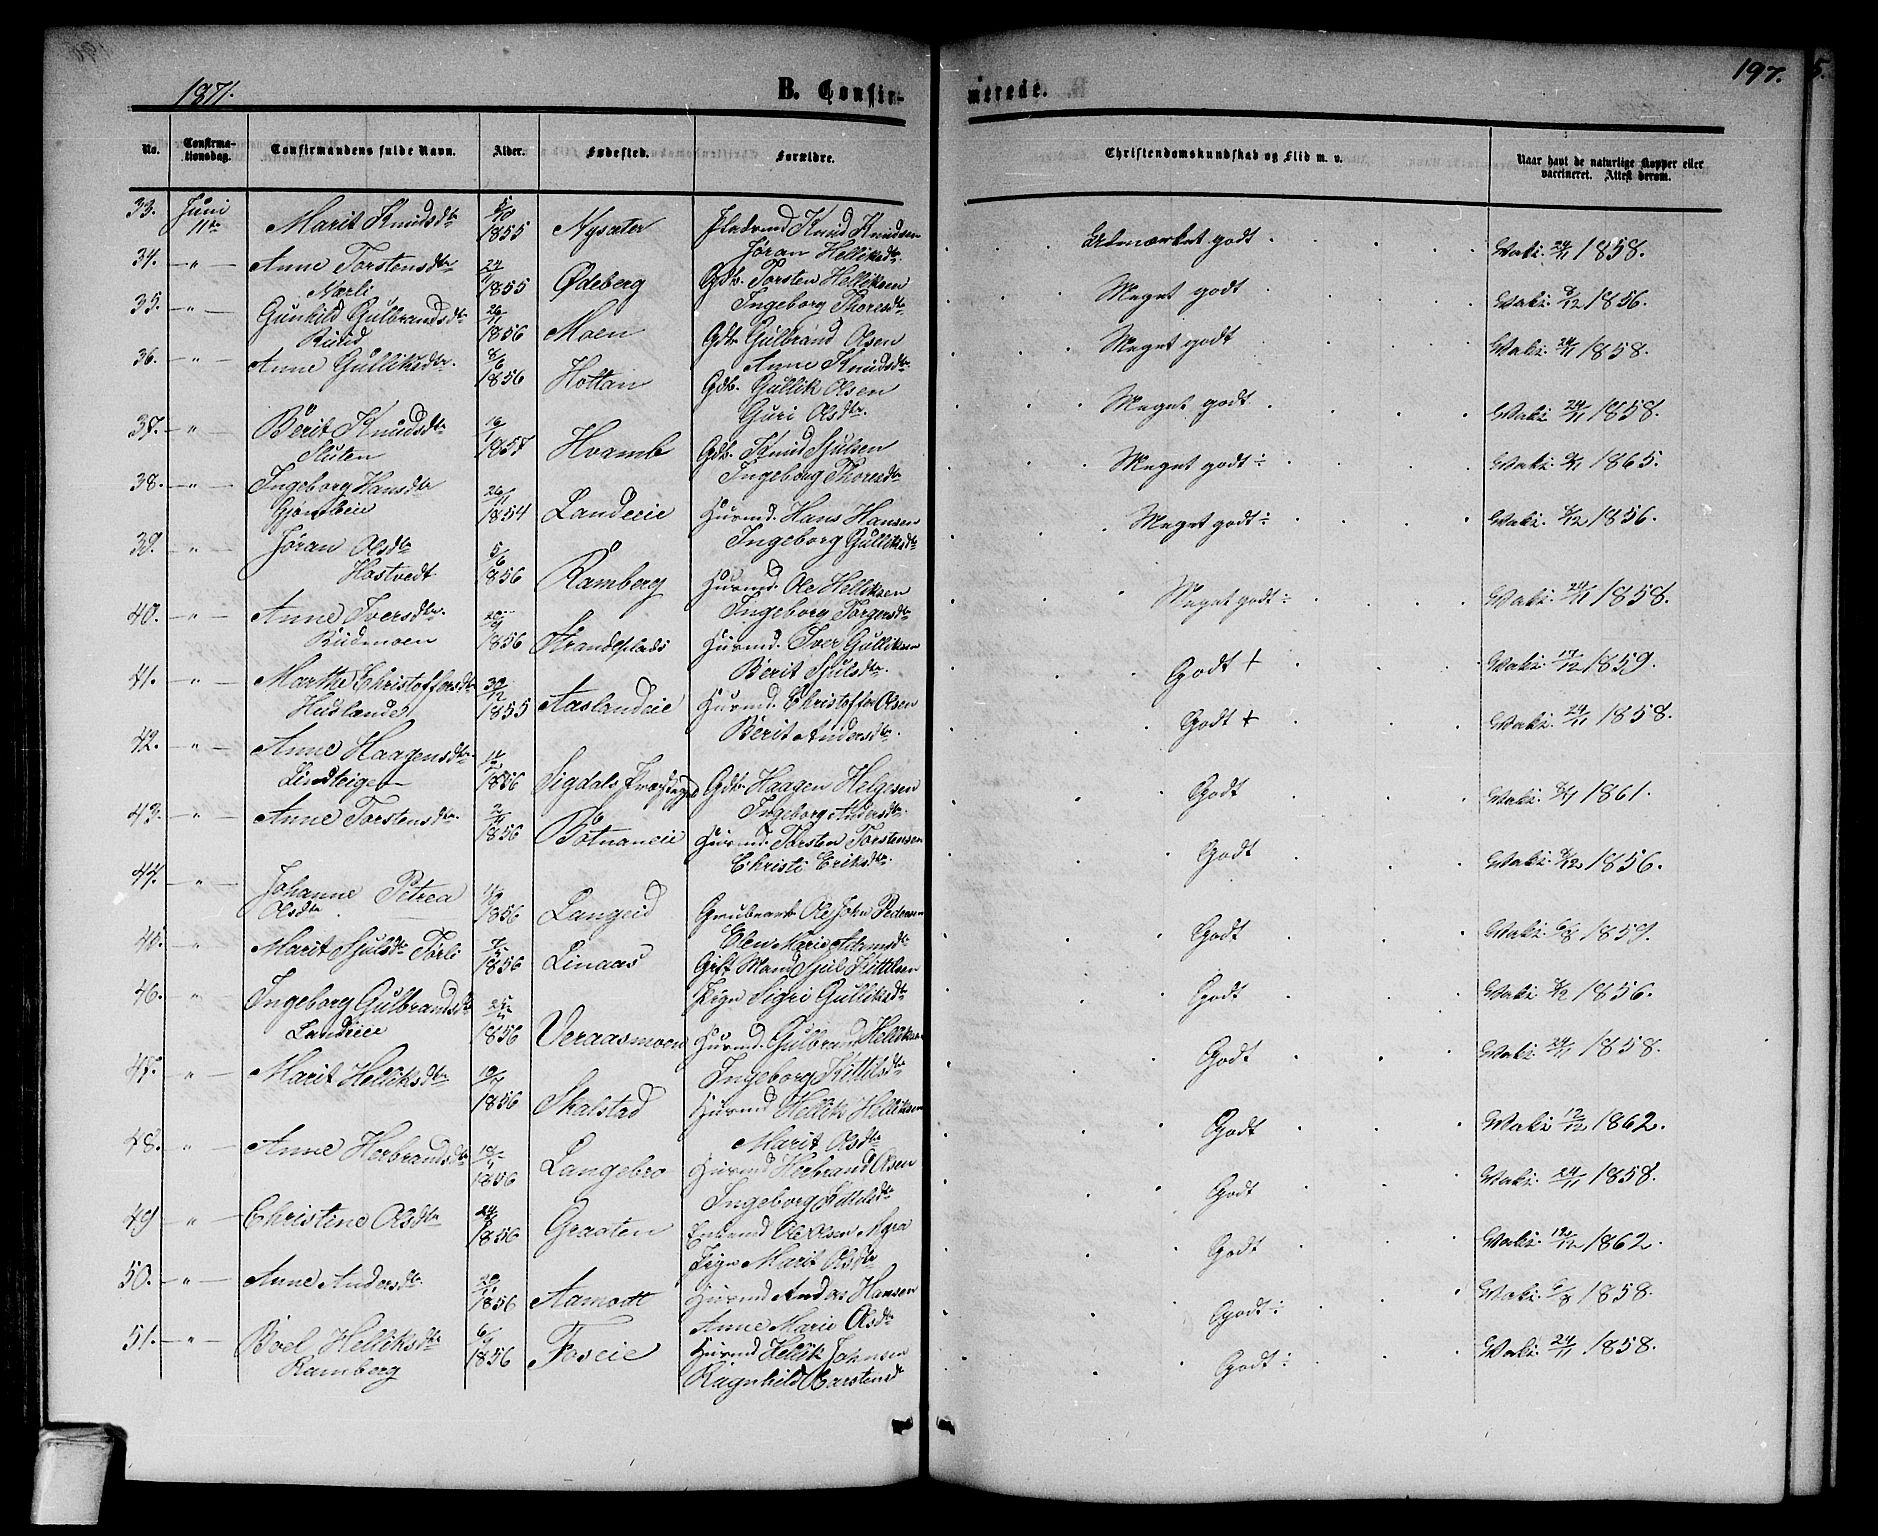 1871.
B. Confir-
merede.
197.
5.
No.
Confirma-
tionsdag.
Confirmandens fulde Navn.
Alder.
Fødested.
Forældre.
Christendomskundskab og Flid m. v.
Naar havt de naturlige Kopper eller
vaccineret. Attest derom.
33. Juni 11te Marit Knudsdtr 5/10 1855 Nysæter Knud Knudsen
Jøran Helliksdtr. Udmærket godt Vaks. 24/11 1858.
34. — " — Anne Torstensdtr 24/11 1855 Ødeberg Gdb. Torsten Helliksen
Nærli Ingeborg Thoresdtr. Meget godt Vaks. 8/12 1856.
35. — " — Gunhild Gulbrandsdtr 26/11 1856 Moen Gdb Gulbrand Olsen
Ruud Anne Knudsdtr. Meget godt Vaks. 24/11 1858.
36. — " — Anne Gulliksdtr. 8/6 1856 Hottan Gdb. Gullik Olsen
Guri Olsdtr. Meget godt Vaks. 24/11 1858.
37. — " — Berit Knudsdtr 1857 Hvamb Gdb. Knud Sjulsen
Sluten Ingeborg Thoresdtr Meget godt ÷ Vaks. 1865.
38. — " — Ingeborg Hansdtr 26/11 1854 Landeeie Huusmd. Hans Hansen
Ingeborg Gulliksdtr Meget godt ÷ Vaks. 8/12 1856.
39. — " — Jøran Olsdtr 5/6 1856 Ramberg Huusmd. Ole Helliksen
Hostvedt Ingeborg Torgersdtr Meget godt ÷ Vaks. 24/11 1858.
40. — " — Anne Iversdtr. 1856 Strandeplads Huusmd. Iver Gulliksen
Rudemoen Berit Sjulsdtr. Godt + Vaks. 17/12 1859.
41. — " — Marthe Christoffersdtr 30/12 1855 Aaslandeie Huusmd. Christoffer Olsen
Huslande Berit Andersdtr. Godt + Vaks. 24/11 1858.
42. — " — Anne Haagensdtr. 1856 Sigdals Præstegd Gdb Haagen Helgesen
Lindteigen Ingeborg Andersdtr. Godt Vaks. 1861.
43. — " — Anne Torstensdtr. 1856 Botnaneie Huusmd. Torsten Torstensen
Christi Eriksdtr. Godt Vaks. 8/12 1856.
44. — " — Johanne Petrea 11/9 1856 Langerud Grubearb Ole John Pedersen
Olsdtr Elen Marie Adamsdtr Godt Vaks. 6/8 1859.
45. — " — Marit Sjulsdtr Torli 1856 Linaas Gift Mand Sjul Kittilsen
Pige Sigri Gulliksdtr Godt Vaks. 8/12 1856.
46. — " Ingeborg Gulbrandsdtr 1856 Veraasmoen Huusmd. Gulbrand Helliksen
Landeeie Ingeborg Kittilsdtr Godt Vaks. 24/11 1858.
47. — " — Marit Helliksdtr 19/7 1856 Skalstad Huusmd Hellik Helliksen
Marit Olsdtr Godt Vaks. 12/12 1862.
48. — " — Anne Herbrandsdtr 1856 Langebro Huusmd Herbrand Olsen
Ingeborg Kittelsdtr Godt Vaks. 24/11 1858.
49 — " — Christine Olsdtr 1856 Graaten Enkemd Ole Olsen Myra
Pige Marit Olsdtr Godt Vaks. 12/12 1862.
50. — " — Anne Andersdtr. 1856 Aamodt Huusmd Anders Hansen
Anne Marie Olsdtr Godt ÷ Vaks. 6/8 1858.
51. — " — Boel Helliksdtr 1856 Foseie Huusmd Hellik Johnsen
Ramberg Ragnhild Carstensd Godt ÷ Vaks. 24/11 1858.